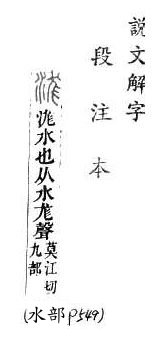 説文解字
段注本
浝水也从水尨聲
莫江切
九部
(水部p549)